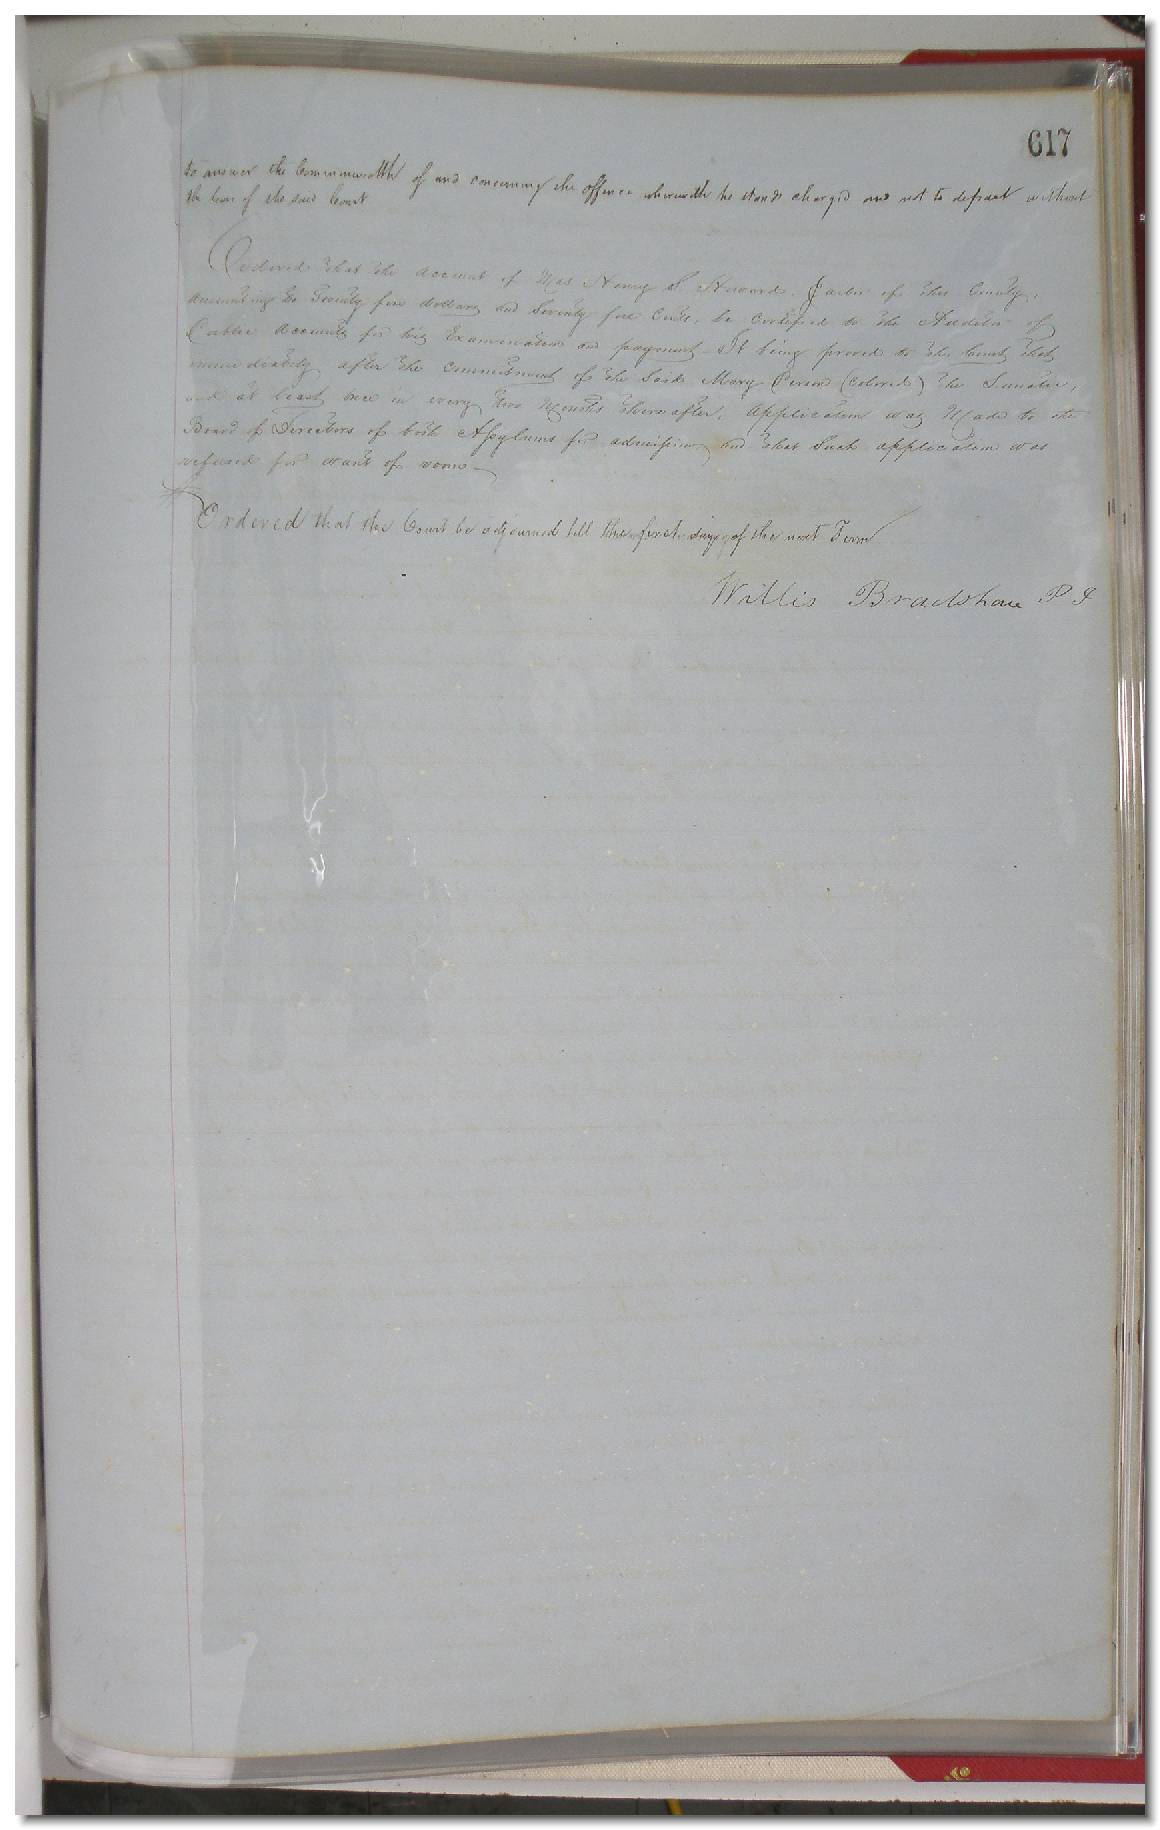 617
to answer the Commonwealth of and concerning the offence wherewith he stands charged and not to depart without
the leave of the said Court
Ordered that the account of Henry S Howard Jailor of this County,
amounting to Seventy five dollars and Seventy five Cents, be certified to the Auditor of
Public Accounts for his Examination and payment – It being proved to the Court, that
immediately after the commitment of the said Mary (Colored) the Lunatic,
and at least once in every two Months thereafter, application was Made to the
Board of Directors of both Asylums for admission, and that Such application was
refused for want of room –
Ordered that the Court be adjourned till the first day of the next Term
Willis Bradshaw P J